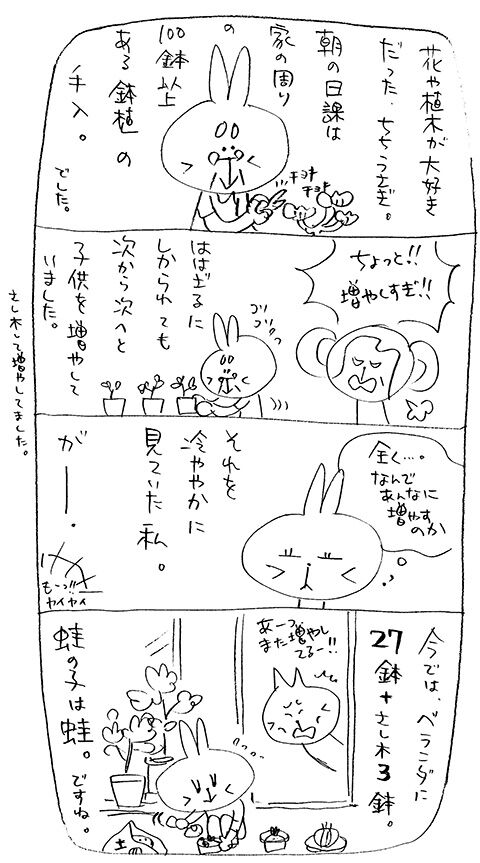 花や植木が大好き
だった、ちちうさぎ。
朝の日課は
家の周り
の
100鉢以上
ある鉢植の
手入。
でした。
チョキ
チョキ
ちょっと!!
増やしすぎ!!
ははざるに
しかられても
次から次へと
子供を増やして
いました。
コソ
コソ
さし木して増やしてました。
全く…。
なんで
あんなに
増やす
のか
それを
冷ややかに
見ていた私。
がー。
もーっ!!
ヤイヤイ
今では、ベランダに
27鉢+さし木3鉢。
あーっ
また増やし
てるー!!
蛙の子は蛙。ですね。
土